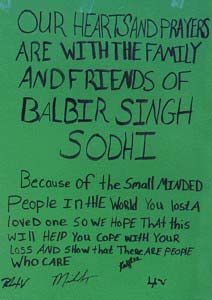 OUR HEARTS AND PRAYERS
ARE WITH THE FAMILY
AND FRIENDS OF
BALBIR SINGH
SODHI
Because of the Small MINDED
People In the World You lost A
loved one so we Hope THAT this
will HELP You Cope WITH Your
Loss AND Show that There ARE PEOPLE
WHO CARE